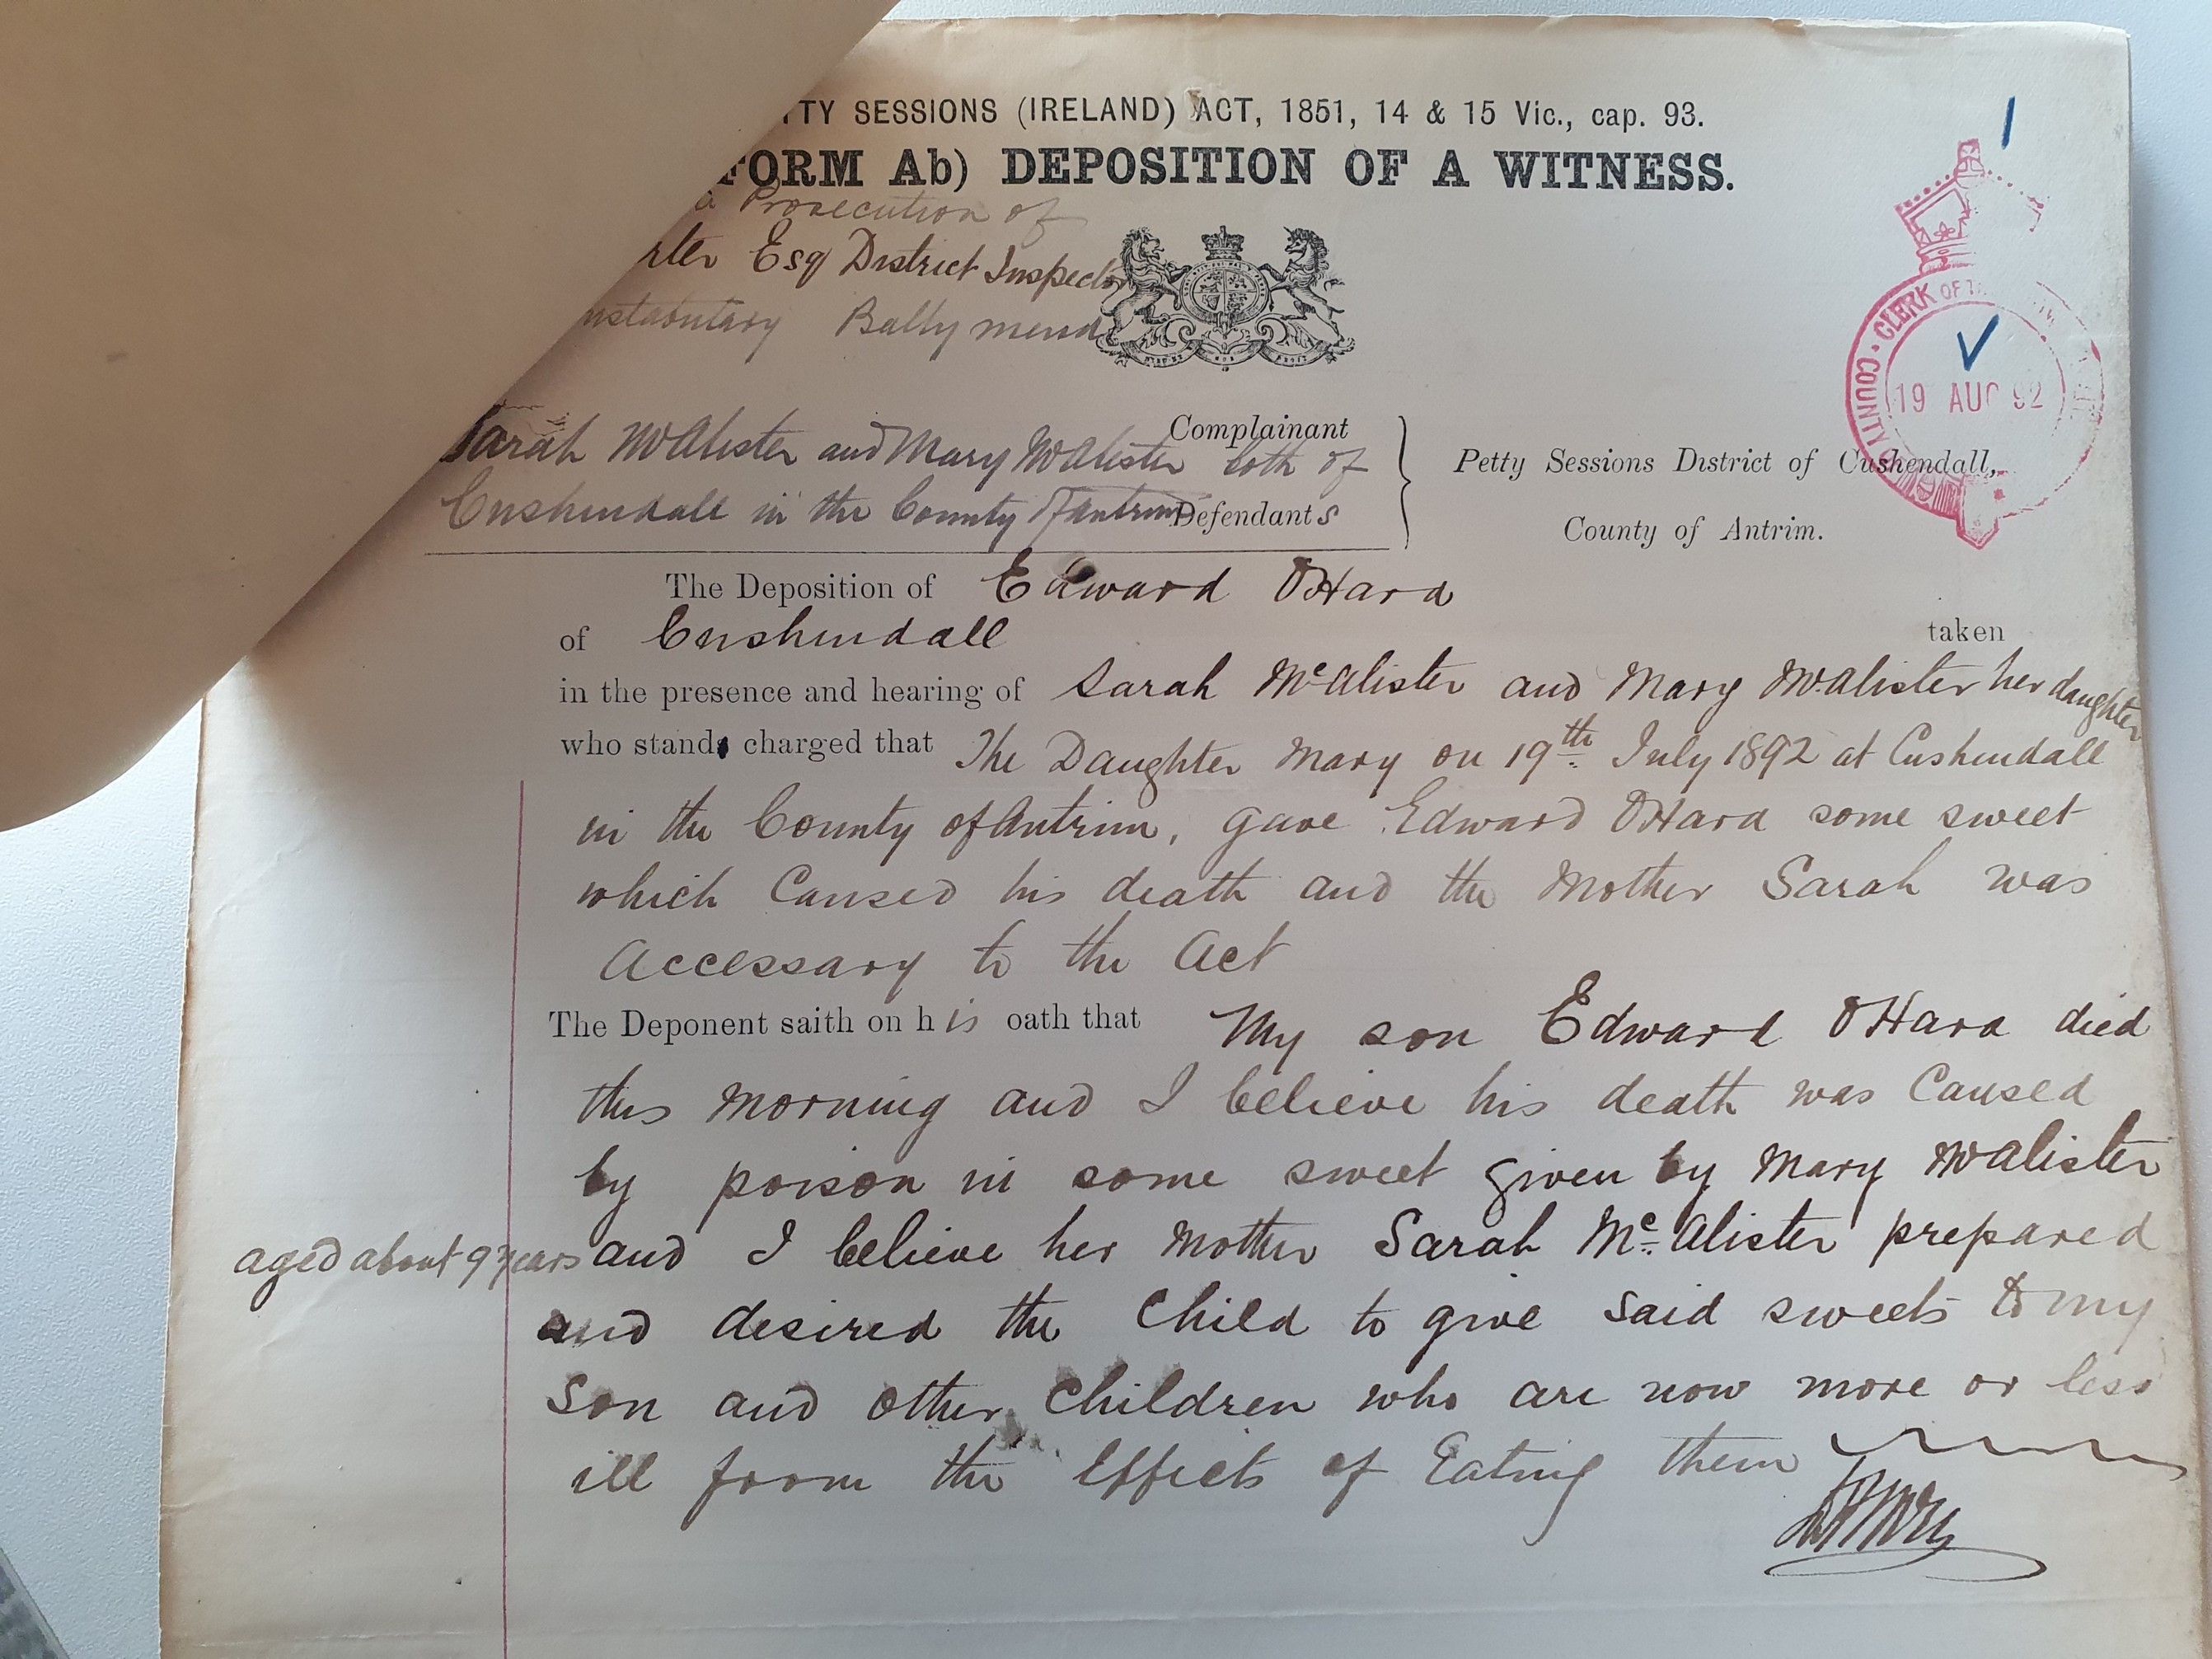 TTY SESSIONS (IRELAND) ACT, 1851, 14 & 15 Vic., cap. 93.
FORM Ab) DEPOSITION OF A WITNESS.
Prosecution of
Esq District Inspector
nstabulary Ballymena
Complainant
Sarah McAlister and Mary McAlister both of
Cushendall in the County of Antrim Defendants
Petty Sessions District of Cushendall,
County of Antrim.
1
COUNTY CLERK OF
19 AUG 92
The Deposition of Edward OHara
of Cushendall taken
in the presence and hearing of Sarah McAlister and Mary McAlister her daughter
who stand charged that The Daughter Mary on 19th July 1892 at Cushendall
in the County of Antrim, gave Edward OHara some sweet
which Caused his death and the Mother Sarah was
Accessary to the Act
The Deponent saith on his oath that My son Edward OHara died
this morning and I believe his death was Caused
by poison in some sweet given by Mary McAlister
aged about 9 years and I believe her Mother Sarah McAlister prepared
and desired the Child to give said sweets to my
Son and other Children who are now more or less
ill from the Effects of Eating them